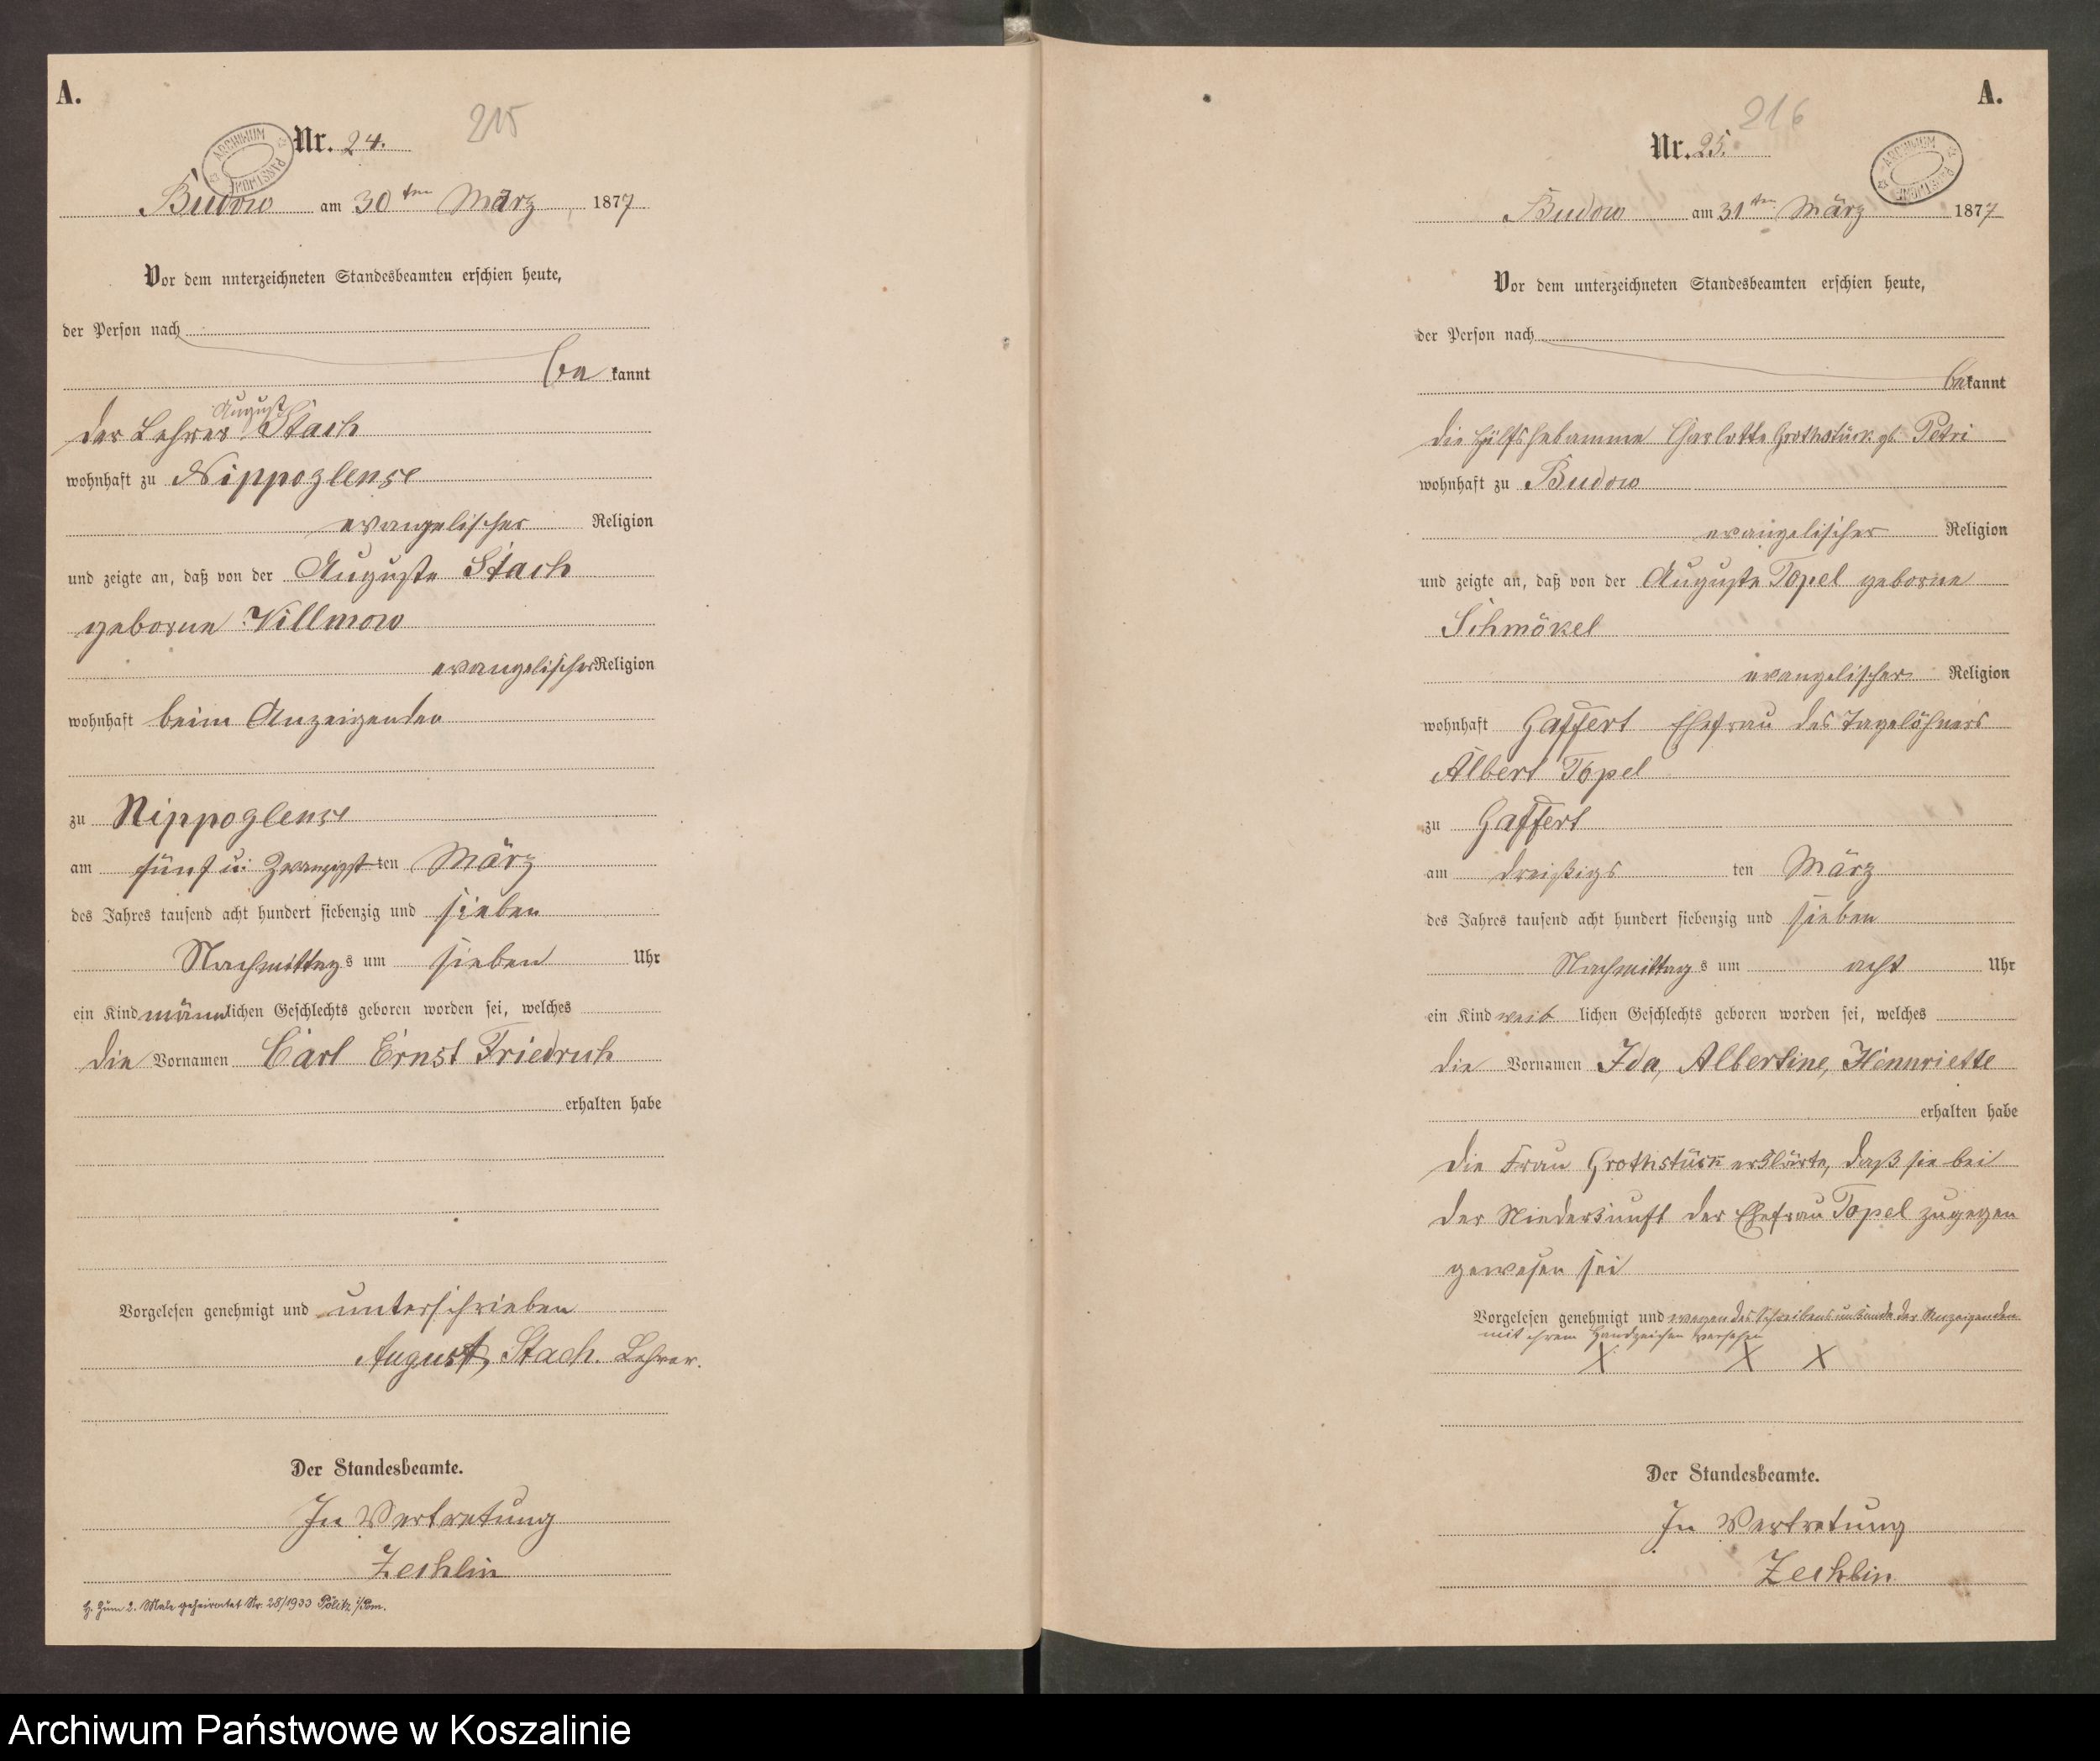 A.
215
ARCHIWUM PAŃSTWOWE
Nr. 24.
Budow am 30ten März 1877
Vor dem nnterzeichneten Standesbeamten erschien heute,
der Person nach
be kannt
August
der Lehrer Stach
wohnhaft zu Nippoglense
evangelischer Religion
und zeigte an, daß von der Auguste Stach
geborne Villmow
evangelischer Religion
wohnhaft beim Anzeigenden
zu Nippoglense
am fünf u. zwanzigst ten März
des Jahres tausend acht hundert siebenzig und sieben
Nachmittag s um sieben Uhr
ein Kind männlichen Geschlechts geboren worden sei, welches
die Vornamen Carl Ernst Friedrich
erhalten habe
Vorgelesen genehmigt und unterschrieben
August Stach. Lehrer.
Der Standesbeamte.
In Vertretung
Zechlin
H. Zum 2. Male geheiratet Nr. 28/1933 Pölitz i/Pom.
A.
216
Nr. 25.
ARCHIWUM PAŃSTWOWE
Budow am 31ten März 1877
Vor dem unterzeichneten Standesbeamten erschien heute,
der Person nach
bekannt
die Hülfshebamme Charlotte Grothstück gb. Petri
wohnhaft zu Budow
evangelischer Religion
und zeigte an, daß von der Auguste Topel geborne
Schmökel
evangelischer Religion
wohnhaft Gaffert Ehefrau des Tagelöhners
Albert Topel
zu Gaffert
am dreißigs ten März
des Jahres tausend acht hundert siebenzig und sieben
Nachmittag s um acht Uhr
ein Kind weib lichen Geschlechts geboren worden sei, welches
die Vornamen Ida, Albertine, Hennriette
erhalten habe
Die Frau Grothstück erklärte, daß sie bei
der Niederkunft der Ehefrau Topel zugegen
gewesen sei
Vorgelesen genehmigt und wegen des Schreibens unkunde der Anzeigenden
mit ihrem Handzeichen versehen
X X X
Der Standesbeamte.
In Vertretung
Zechlin
Archiwum Państwowe w Koszalinie